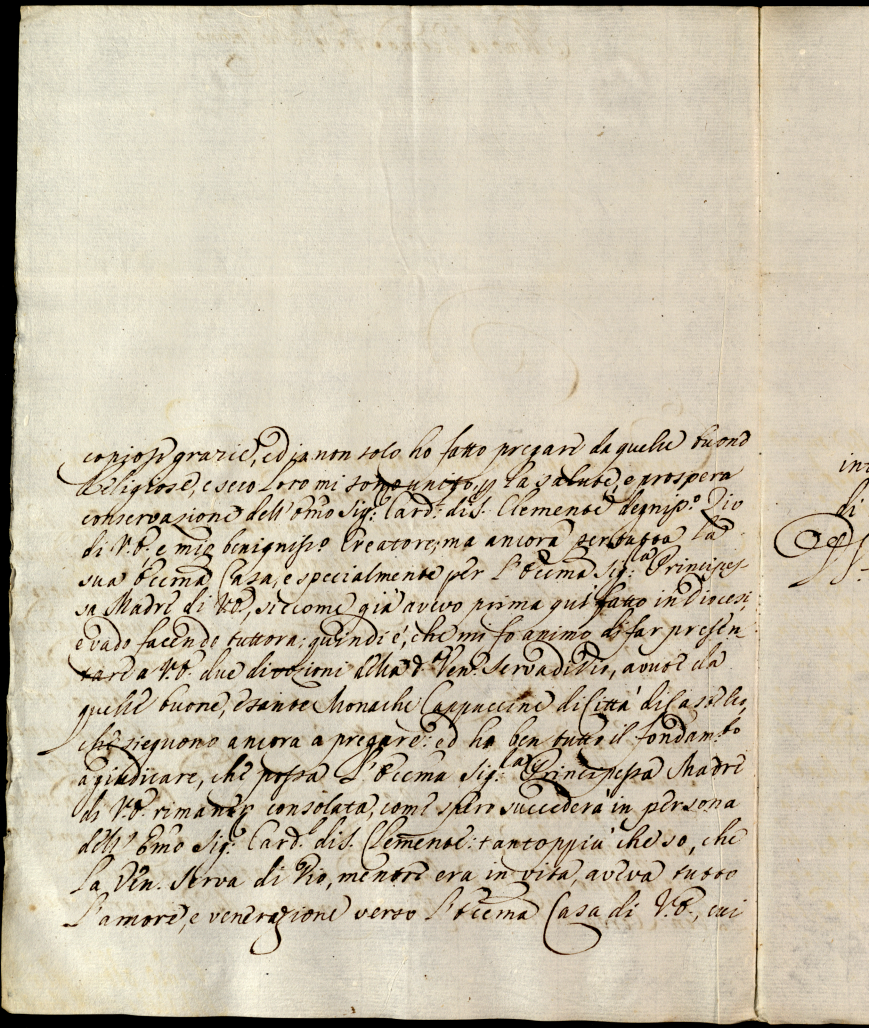 copiose grazie, ed io non solo ho fatto pregare da quelle buone
Religiose, e seco Loro mi sono unito, p la salute, e prospera
conservazione dell' Emo Sig.r Card.e di S. Clemente degniss.o Zio
di V.E. e mio benigniss.o Creatore; ma ancora per tutta la
sua Eccma Casa, e specialmente per l'Eccma Sig.ra Principes-
sa Madre di V.E., siccome già avevo prima quì fatto in Diocesi,
e vado facendo tuttora; quindi è, che mi fo animo di far presen-
tare a V.E. due divozioni della d.a Ven. Serva di Dio, avute da
quelle buone, e sante Monache Cappuccine di Città di Castello,
che sieguono ancora a pregare: ed ho ben tutto il fondam.to
a giudicare, che possa l'Eccma Sig.ra Principessa Madre
di V.E. rimaner consolata, come spero succederà in persona
dell' Emo Sig.r Card.e di S. Clemente: tantoppiù che so, che
la Ven. Serva di Dio, mentre era in vita, aveva tutto
l'amore, e venerazione verso l'Eccma Casa di V.E., cui
di